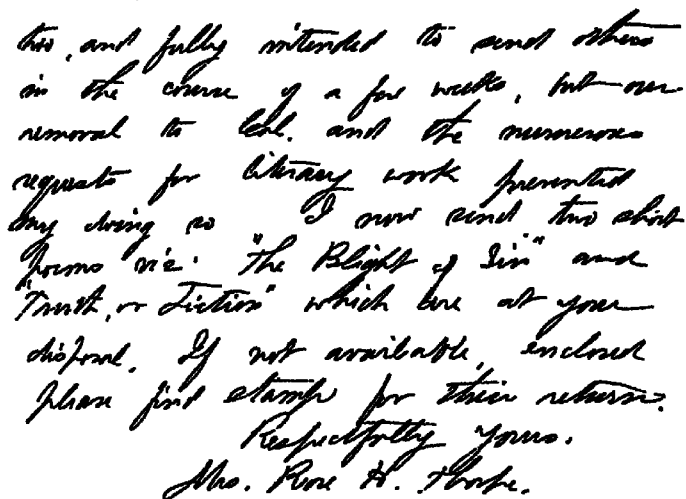 two, and fully intended to send others
in the course of a few weeks, but our
removal to Cal. and the numerous
requests for literary work prevented
my doing so I now send two short
poems viz. "The Blight of Sin" and
"Truth, or Fiction" which are at your
disposal. If not available, enclosed
please find stamp for their return.
Respectfully yours.
Mrs. Rose H. Thorpe.